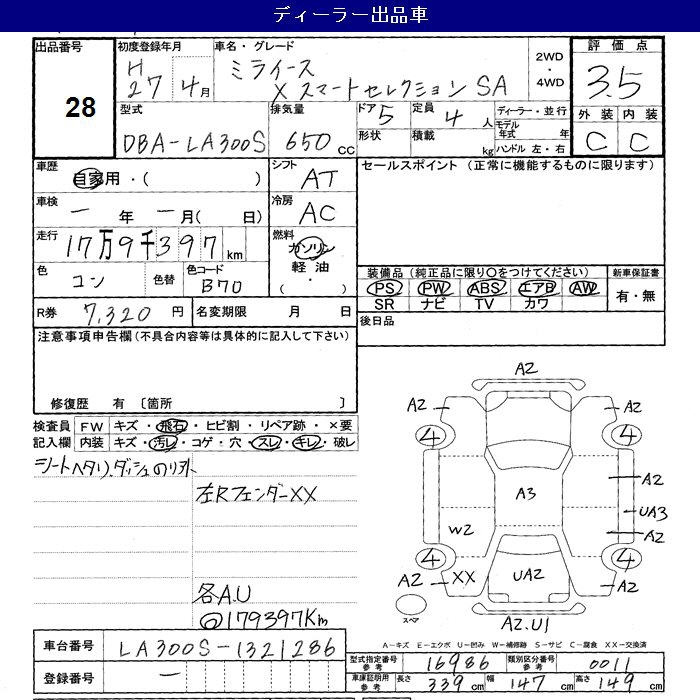 ディーラー出品車
出品番号 28
初度登録年月 H27年 4月
車名・グレード ミライース
X スマートセレクション SA
2WD・4WD
評価点 3.5
外装 C 内装 C
型式 DBA-LA300S
排気量 650 cc
ドア 5 形状
定員 4 人 積載 kg
ディーラー・並行
モデル年式 年
ハンドル 左・右
車歴 自家用・( )
シフト AT
車検 一年一月( 日)
冷房 AC
走行 17万9千397 km
燃料 ガソリン 軽油 ( ・ )
色 コン 色替 色コード B70
R券 7,320 円 名変期限 月 日
セールスポイント (正常に機能するものに限ります)
装備品 (純正品に限り○をつけてください) 新車保証書
PS PW ABS エアB AW 有・無
SR ナビ TV カワ
後日品
注意事項申告欄(不具合内容等は具体的に記入して下さい)
修復歴 有 〔箇所 〕
検査員 FW キズ・飛石・ヒビ割・リペア跡・×要
記入欄 内装 キズ・汚レ・コゲ・穴・スレ・キレ・破レ
シートヘタリ、ダッシュのリ外
左Rフェンダー XX
各A.U
@179397Km
A2
A2 A2
4 4
A2
A3 UA3
W2 A2
4 4
A2 XX UA2 A2
スペア
A2.U1
A-キズ E-エクボ U-凹み W-補修跡 S-サビ C-腐食 XX-交換済
車台番号 LA300S-1321286
登録番号 一
型式指定番号 参考 16986 類別区分番号 参考 0011
車庫証明用 参考 長さ 339 cm 幅 147 cm 高さ 149 cm